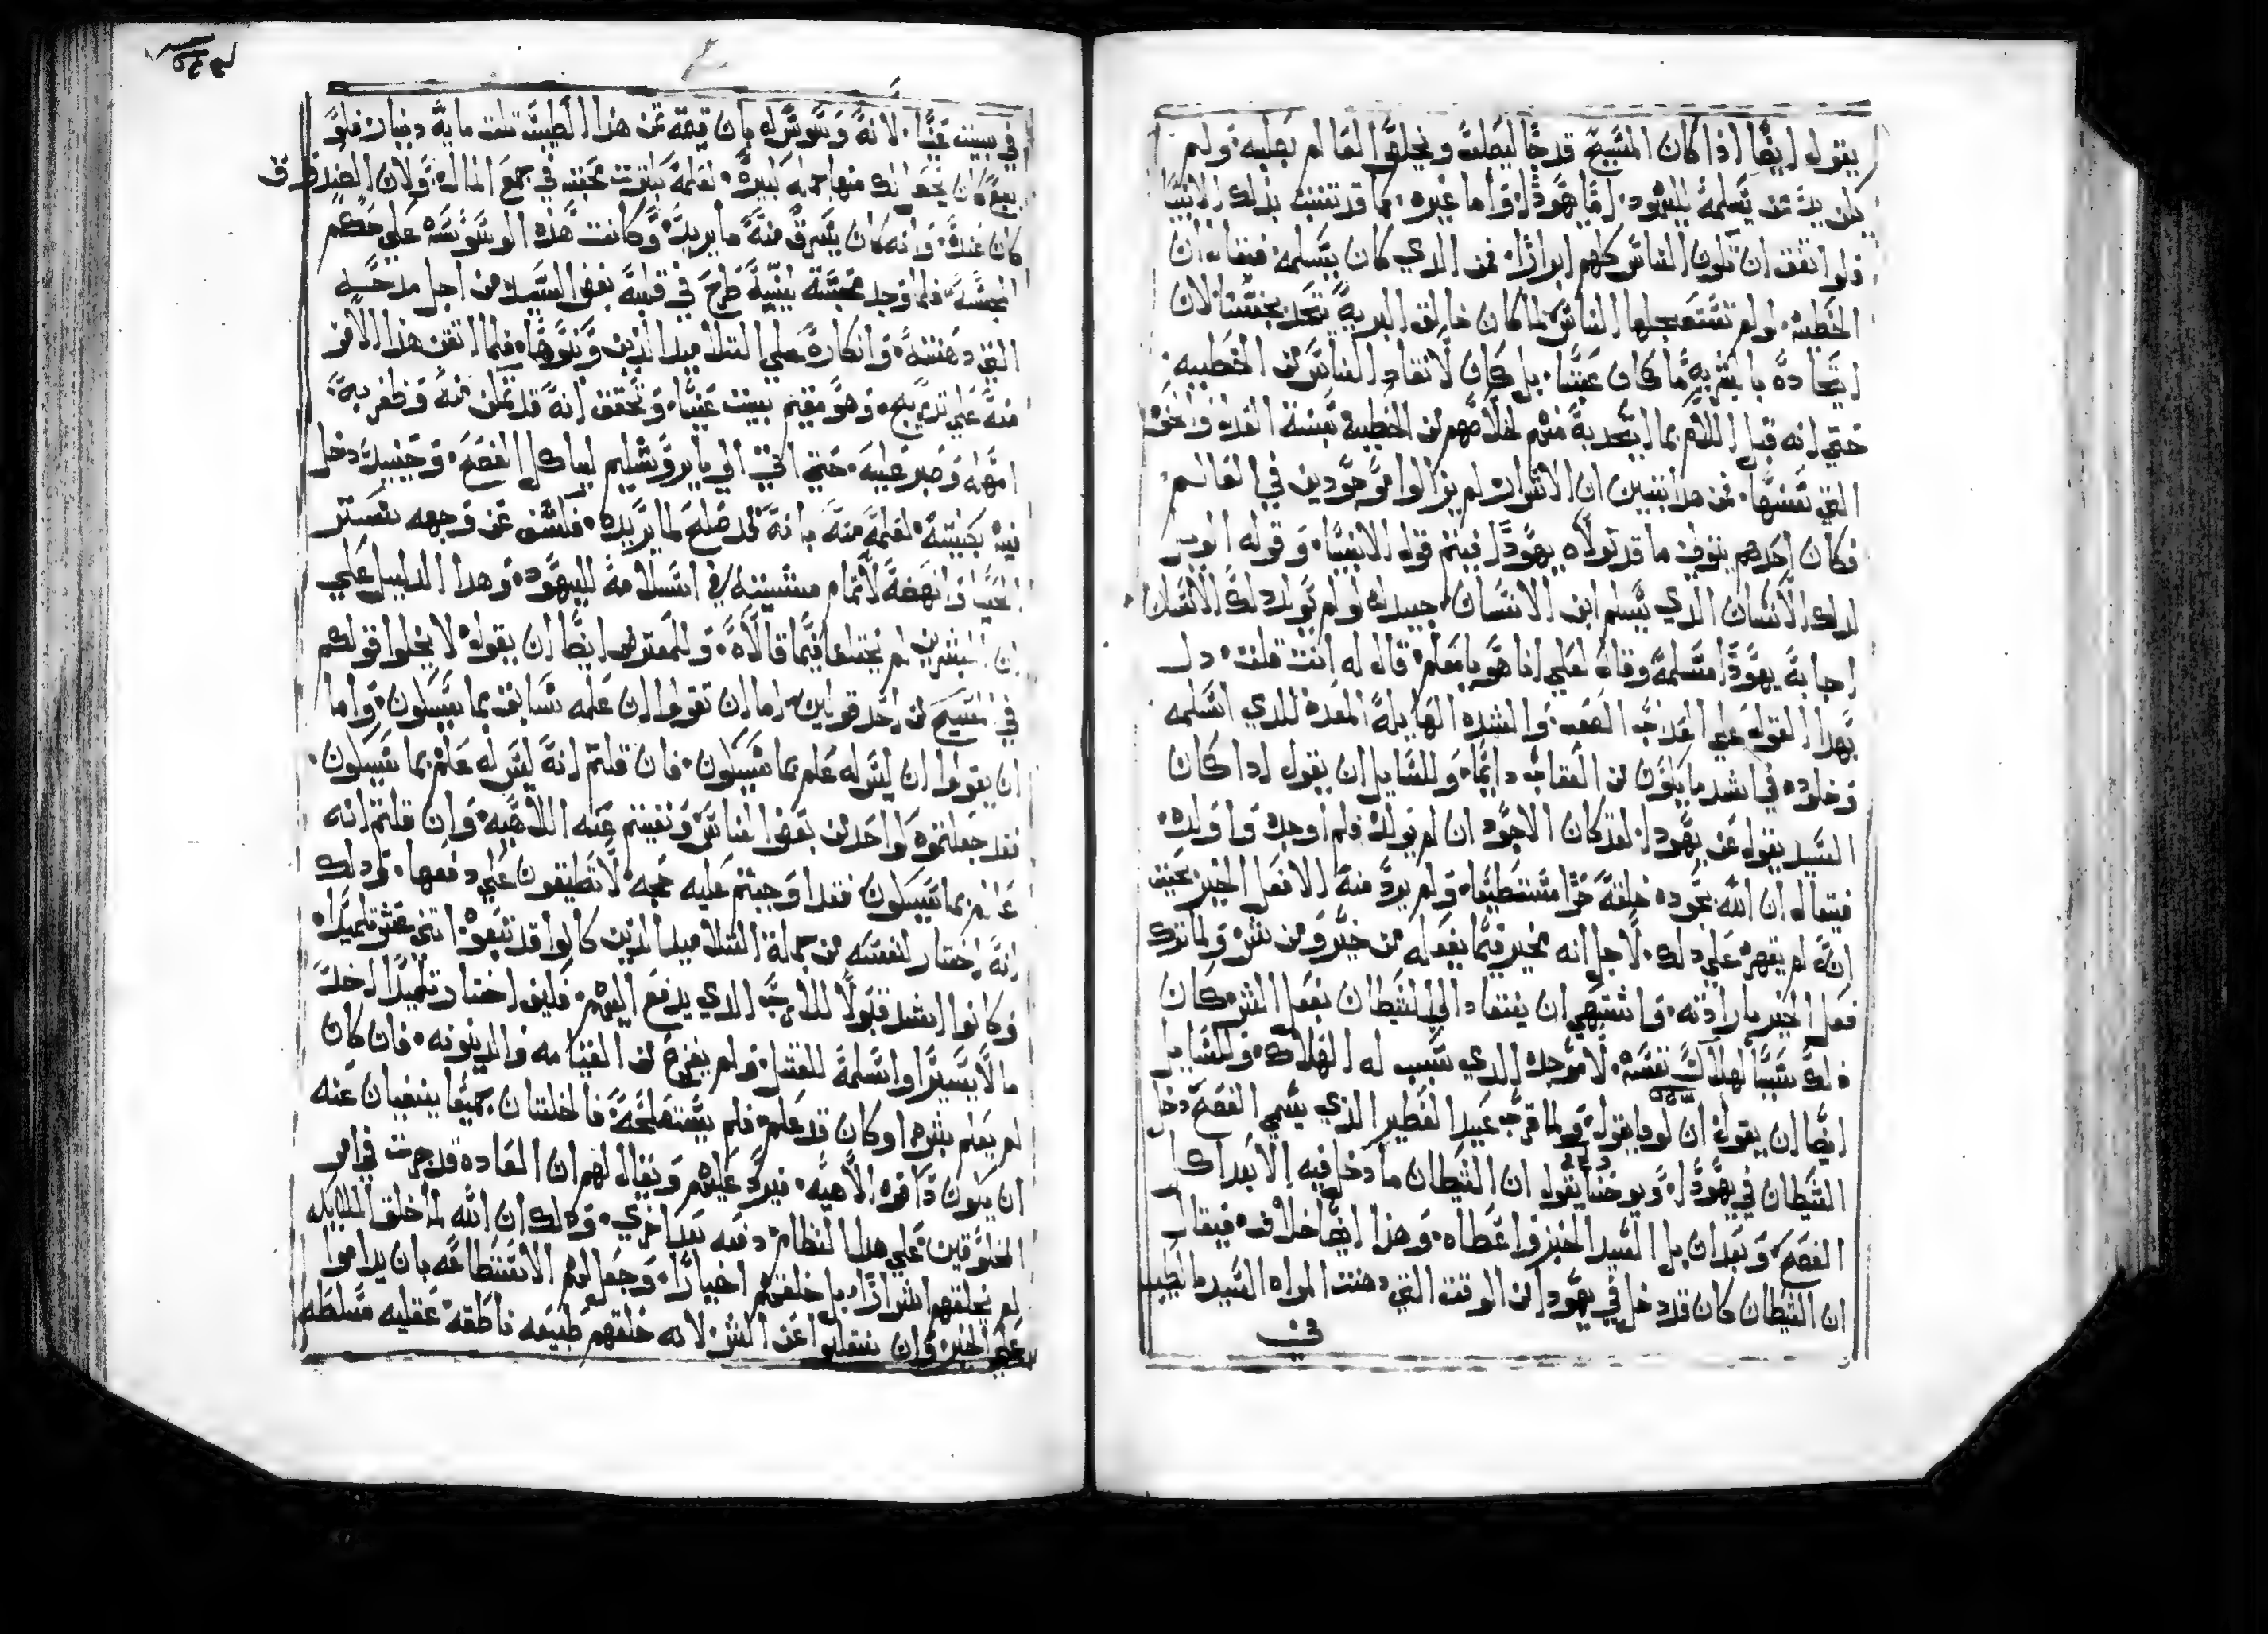 يقول ايضًا اذا كان المسيح قد جا ليصلب ويخلص العالم بصلبه ولم
يكن بد من يسلمه لليهود اما يهودا واما غيره كما قد تنبت بذلك الانبيا
فلو اتفق ان تكون الناس كلهم ابرارًا فمن الدي كان يسلمه فيقال ان
الخطية لو لم تستعبدها الناس لما كان خالق البرية يتحد بجنسنا لان
اتحاده بالبشرية ما كان عبثًا بل كان لانقاد الناس من الخطيه
حتي انه قبل الالام بما اتحد به منهم لخلاصهم من الخطية بسنة العدل والحق
التي سنها فمن هدا يتبين ان الاشرار لم يزالوا موجودين في العالم
فكان احدهم ينوب ما قد تولاه يهودا فيتم قول الانبيا وقوله الويل
لدلك الانسان الدي يسلم ابن الانسان جيد له لو لم يولد دلك الانسان
اجابه يهودا مسلمه وقال لعلي انا هو يا معلم قال له انت قلت دل
بهدا القول علي العداب الصعب والشده الهايلة المعده للدي اسلمه
وخلوده في اشد ما يكون من العقاب دايمًا وللسايل ان يقول ادا كان
السيد يقول عن يهودا لقد كان الاجود ان لم يولد فلم اوجده واولده
فيقال ان الله بجوده خلقه حرًا مستطيعًا ولم يرد منه الا فعل الخير بحيث
انه لم يقهره علي دلك لاجل انه مخير فيما يفعله من خير ومن شر ولما ترك
فعل الخير بارادته واشتهي ان ينقاد الي الشيطان بفعل الشر كان
دلك سببًا لهلاك نفسه لا موجده الدي تسبب له الهلاك وللسايل
ايضًا ان يقول ان لوقا يقول ولما قرب عيد الفطير الذي يسمي الفصح دخل
الشيطان في يهودا ويوحنا يقول ان الشيطان ما دخل فيه الا بعد اكل
الفصح وبعد ان بل السيد الخبز واعطاه وهذا ايضًا خلاف فيقال
ان الشيطان كان قد دخل في يهودا من الوقت التي دهنت المراه السيد بالطيب
في
في بيت عنيا لانه وسوس له بان قيمة ثمن هذا الطيب تلت مايه دينار فلو
بيع كان يحصل لك منها جمله كبيره لعلمه بكثرت محبته في جمع المال ولان الصندوق
كان عنده وانه كان يسرق منه ما يريد وكانت هذه الوسوسه علي حكم
المحسه فلما وجد محبته بنية طرح في قلبه بغض السيد من اجل مدحه
التي دهنته وانكاره علي التلاميد الدين وبخوها فلما اتقن هذا الامر
منه علي تدريج وهو مقيم ببيت عنيا وتحقق انه قد تمكن منه وظفر به
امهله وصبر عليه حتي اتي الي يروشليم لياكل الفصح وحينيد دخل
فيه بكليته لعلمه منه بانه قد صلح لما يريده فكشف عن وجهه تستر
الحيا وانهضه لاتمام مشيته في اتسلامة لليهود وهدا الدليل علي
ان البشرين لم يختلفا فيما قالاه وللمعترض ايضًا ان يقول لا يخلوا قولكم
في المسيح من احد قولين اما ان تقولوا ان علمه سابق بما يكون واما
ان يقولوا ان ليس له علم بما سيكون فان قلتم انه ليس له علم بما سيكون
فقد جعلتموه واحد من بعض الناس ونفيتم عنه اللاهيه وان قلتم انه
عالم بما سيكون فقد اوجبتم عليه حجه لا تطيقون علي دفعها ودلك
انه اختار لنفسه من جملة التلاميد الدين كانوا قد تبعوه اتني عشر تلميدًا
وكانوا اشد قبولًا للاهب الدي يدفع اليهم فكيف اختار تلميدًا اخد
مالًا يسيرًا واسلمة للقتل ولم يفزع من القيامه والدينونه فان كان
لم يعلم بشره او كان قد علم فلم يستصلحه فالخلتان جميعًا ينفيان عنه
ان يكون دا قوه الاهيه فيرد عليهم ويقال لهم ان العاده قد جرت في امر
المخلوقين علي هدا النظام دفعه بعد اخري ودلك ان الله لما خلق الملايكه
لم يخلقهم اشرارًا بل خلقهم اخيارًا وجعل لهم الاستطاعه بان يداموا
علي الخير وان ينتقلوا عن الشر لانه خلقهم طبيعه ناطقه عقليه مسلطه